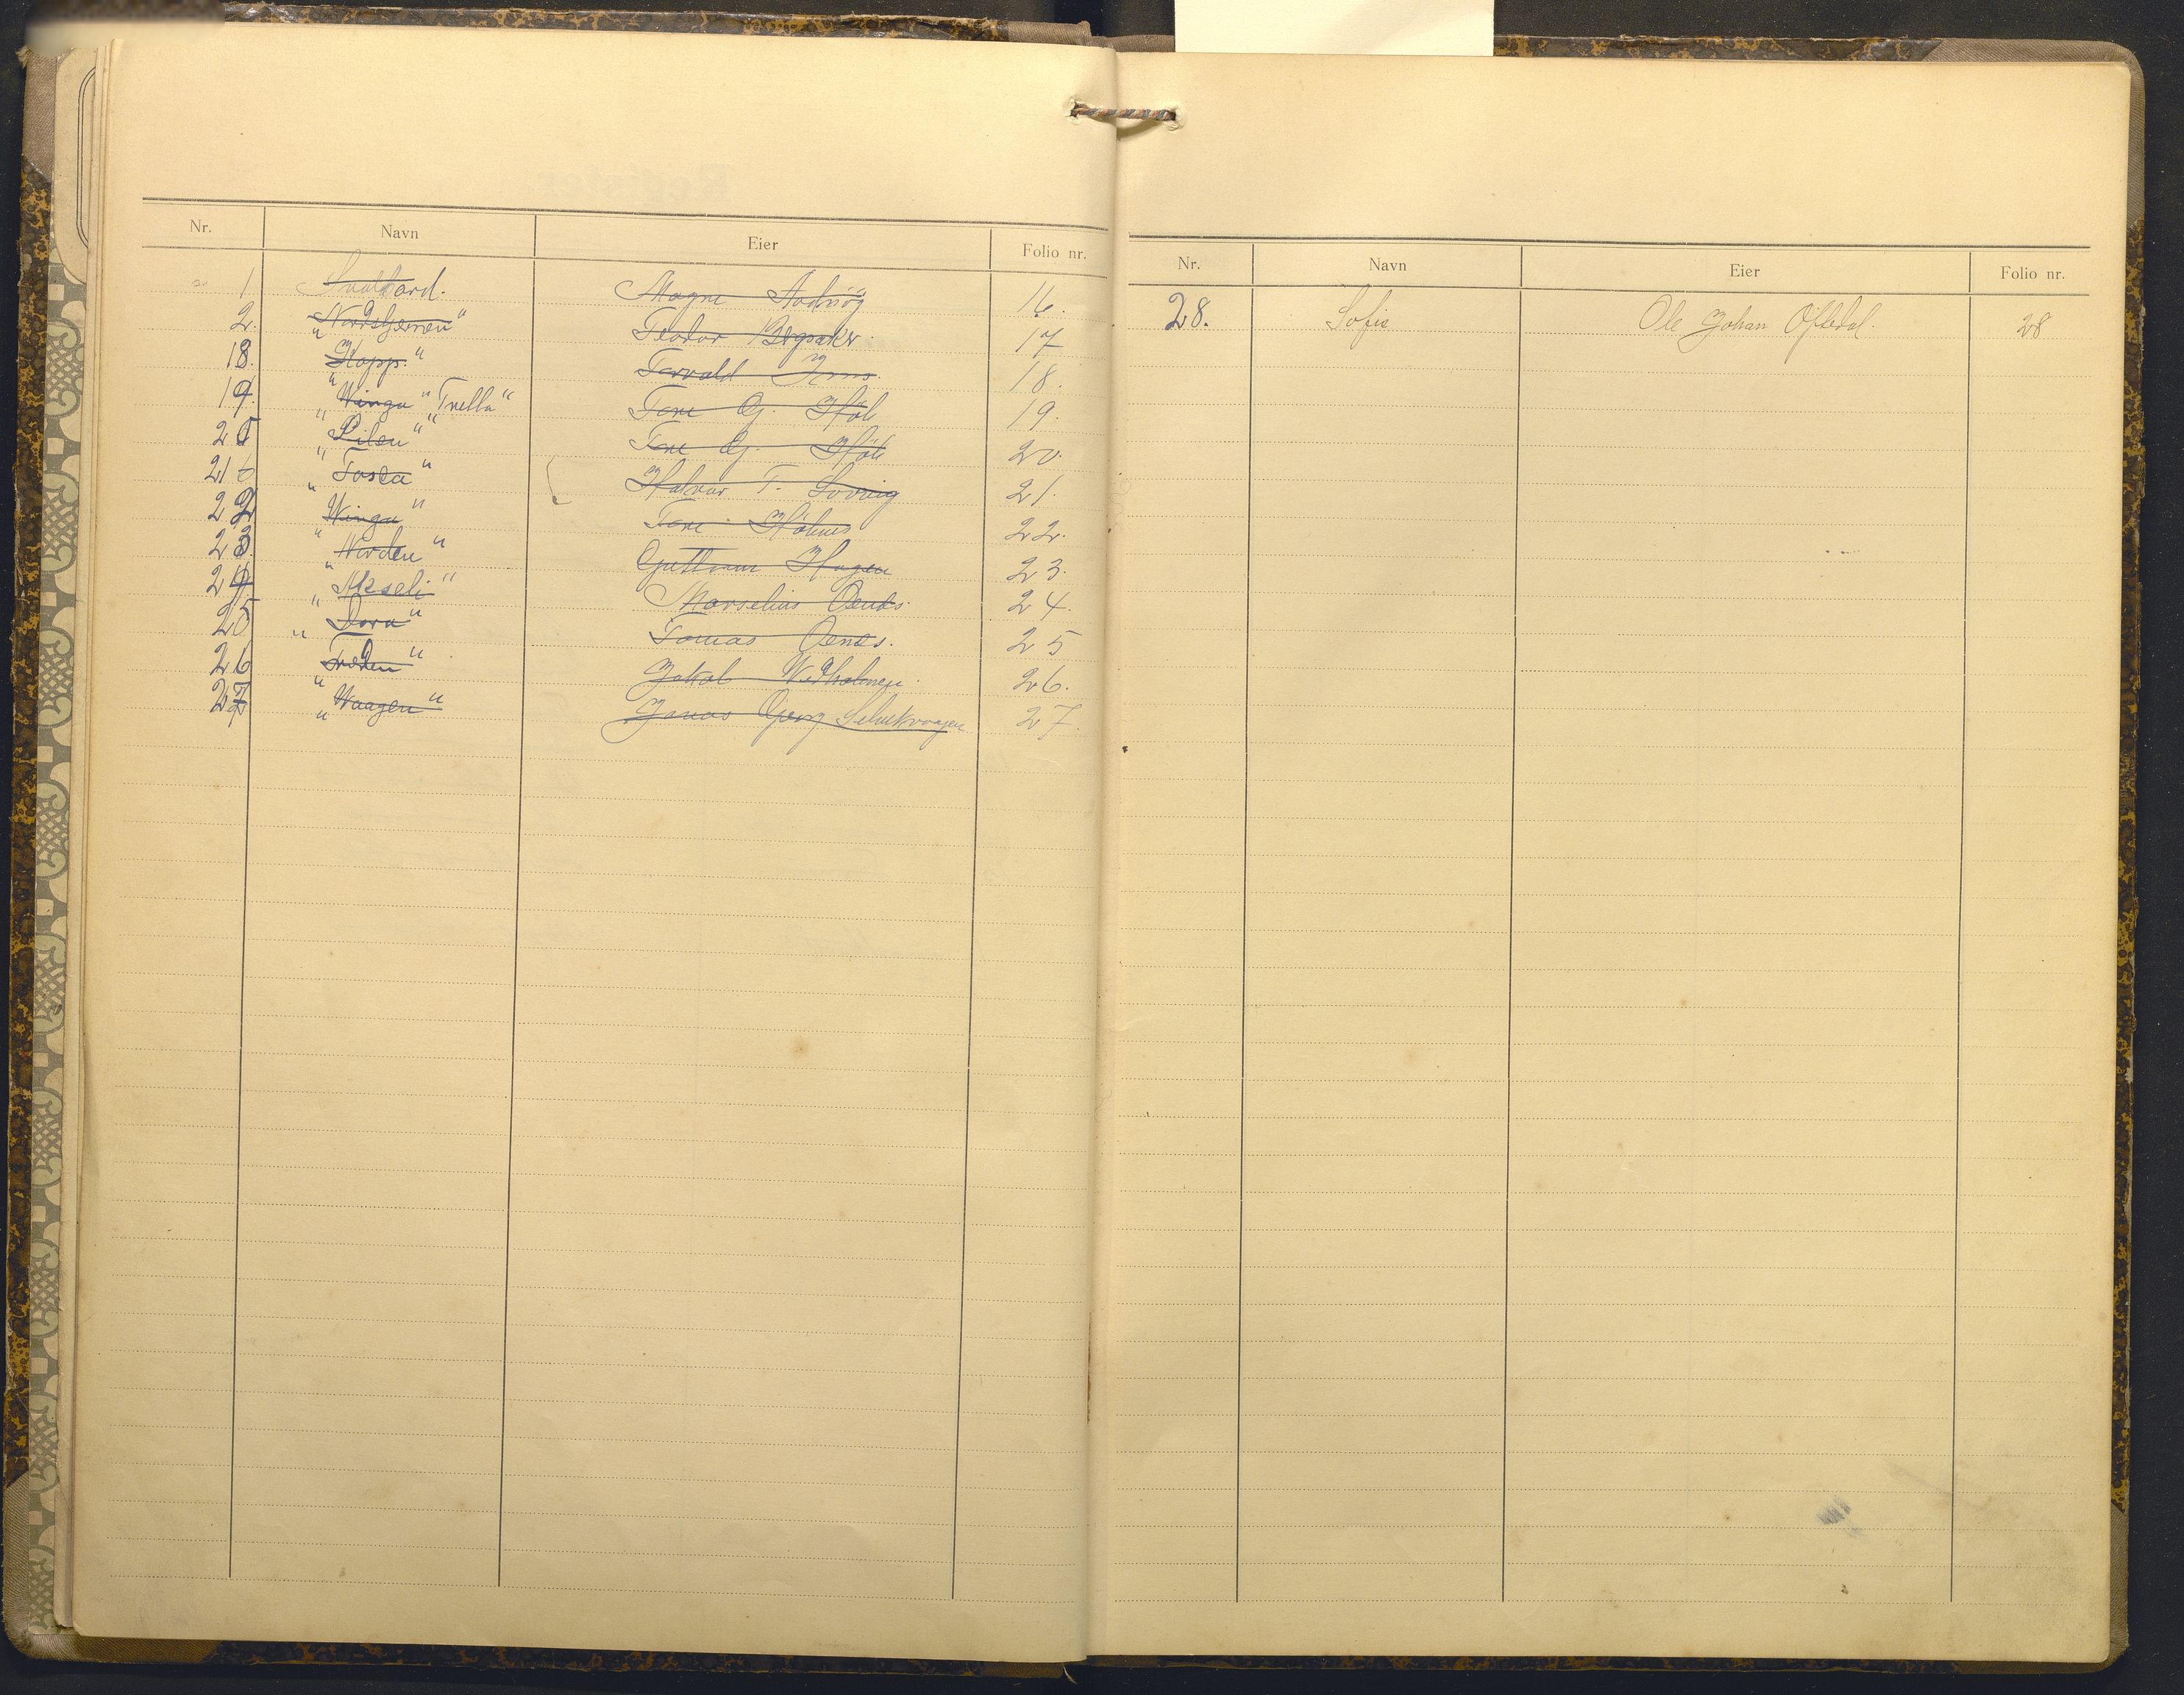 Nr. Navn Eier Folio nr.
1 Svalbard. Magne Aadnöy 16.
2. "Nordstjernen" Teodor Bergsaker. 17
18. "Kopp." Torvald 18.
19. "Winga" "Trella" Tore Gj. Höle 19.
20 "Pilen" Tore Gj. Höle 20.
21 "Tosca" Halvor T. Lovvig 21.
22 "Winga" Tore Hölnes 22.
23. "Norden" Guttorm Hagen 23.
24 "Marselius Oenes. 24.
25 "Dora" Tomas Oenes. 25
26 "Freden" Jakob Wedholmen. 26.
27 "Waagen" Jonas Georg Selvikvaagen 27.
Nr. Navn Eier Folio nr.
28. Sofie Ole Johan Oftedal. 28